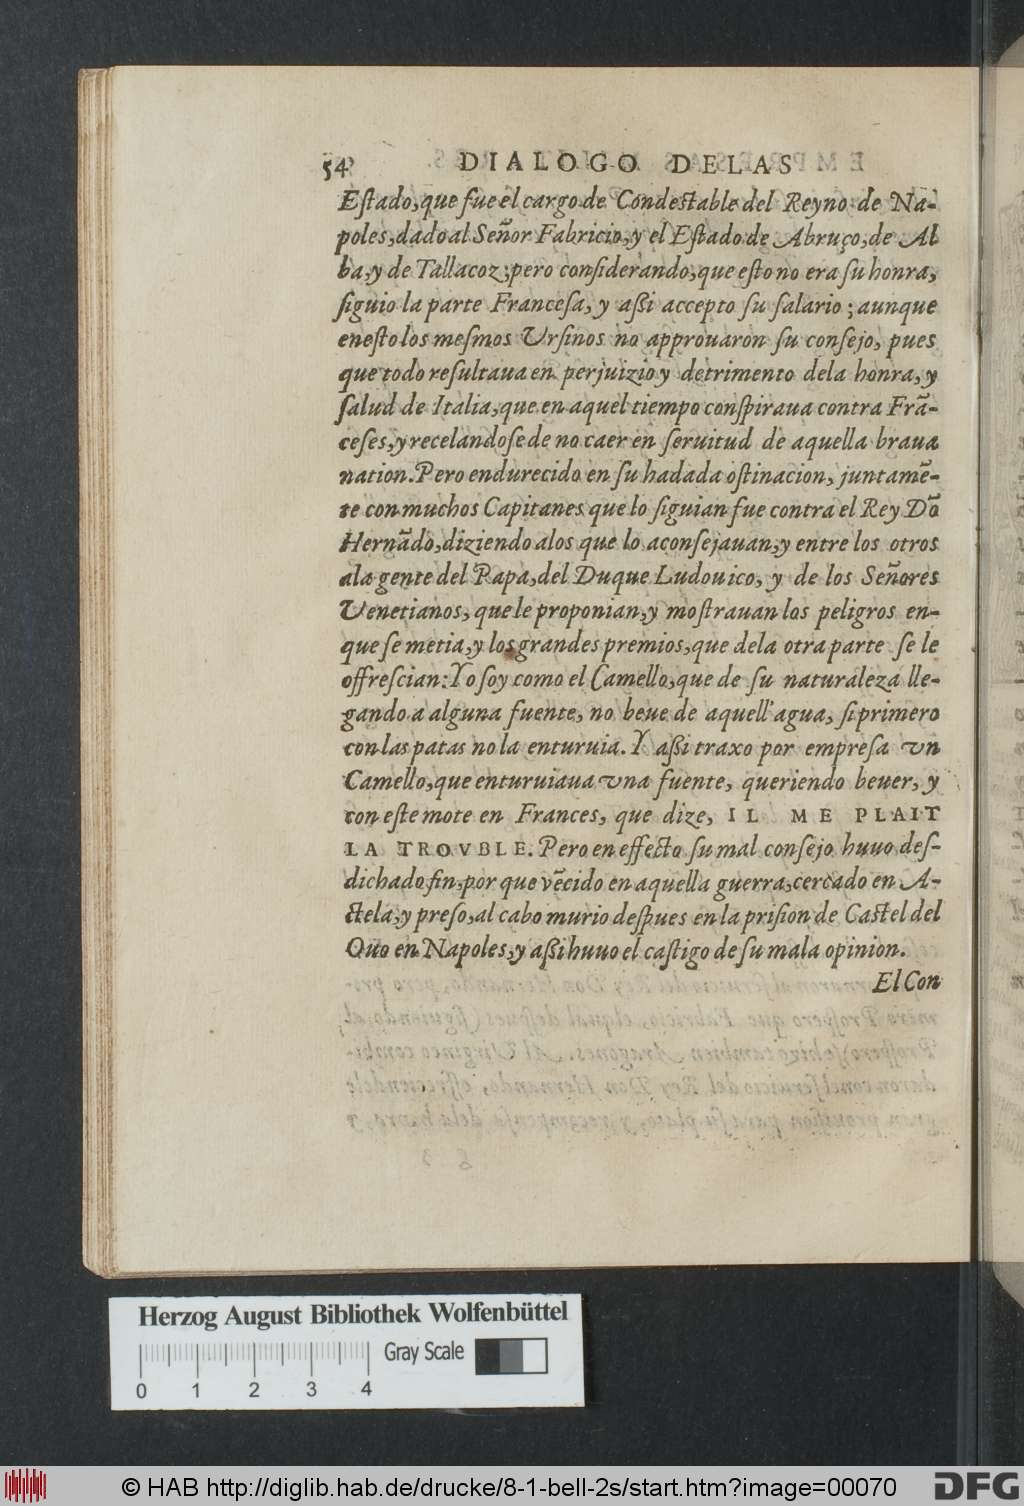 54 DIALOGO DELAS
Eſtado, que fue el cargo de Condeſtable del Reyno de Na-
poles, dado al Señor Fabricio, y el Eſtado de Abruço, de Al
ba, y de Tallacoz; pero conſiderando, que eſto no era ſu honra,
ſiguio la parte Franceſa, y aßi accepto ſu ſalario; aunque
eneſto los meſmos Vrſinos no approuaron ſu conſejo, pues
que todo reſultaua en perjuizio y detrimento dela honra, y
ſalud de Italia, que en aquel tiempo conſpiraua contra Frā-
ceſes, y recelandoſe de no caer en ſeruitud de aquella braua
nation. Pero endurecido en ſu hadada oſtinacion, juntamē-
te con muchos Capitanes que lo ſiguian fue contra el Rey Dō
Hernādo, diziendo alos que lo aconſejauan, y entre los otros
ala gente del Papa, del Duque Ludouico, y de los Señores
Venetianos, que le proponian, y moſtrauan los peligros en-
que ſe metia, y los grandes premios, que dela otra parte ſe le
offreſcian: Yo ſoy como el Camello, que de ſu naturaleza lle-
gando a alguna fuente, no beue de aquell' agua, ſi primero
con las patas no la enturuia. Y aßi traxo por empreſa vn
Camello, que enturuiaua vna fuente, queriendo beuer, y
con eſte mote en Frances, que dize, IL ME PLAIT
LA TROVBLE. Pero en effecto ſu mal conſejo huuo deſ-
dichado fin, por que vēcido en aquella guerra, cercado en A-
ctela, y preſo, al cabo murio deſpues en la priſion de Caſtel del
Ouo en Napoles, y aßi huuo el caſtigo de ſu mala opinion.
El Con
Herzog August Bibliothek Wolfenbüttel
Gray Scale
0 1 2 3 4
© HAB http://diglib.hab.de/drucke/8-1-bell-2s/start.htm?image=00070
DFG